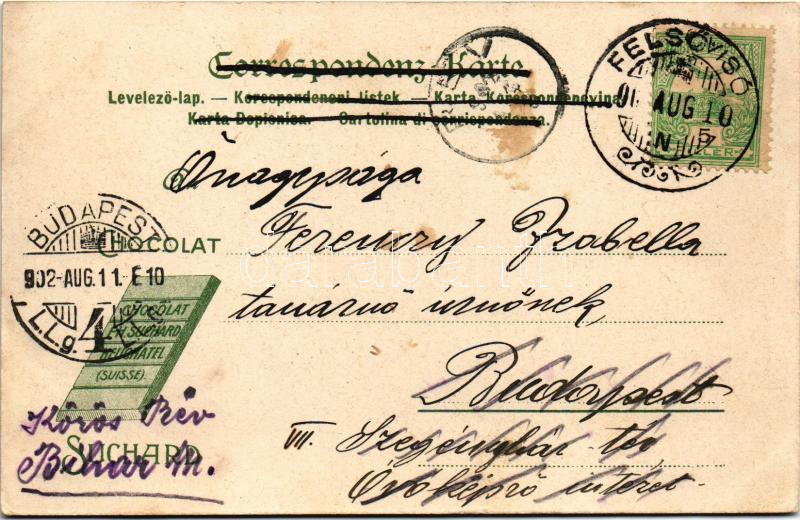 Correspondenz-Karte
Levelezö-lap. — Korespondencni listek. — Karta Korespondencyjna
Karta Dopisnica. Cartolina di corrispondenza.
FELSŐVISÓ
AUG 10
N 5
Önagysága
Ferenczy Izabella
tanárnő urnőnek
Budapest
VII. Szegényház tér
Óvóképző intézet
BUDAPEST
902-AUG.11.-E10
I.I.g. 4
CHOCOLAT
CHOCOLAT
SUCHARD
NEUCHATEL
(SUISSE)
SUCHARD
Körös Rév
Bihar M.
darabanth